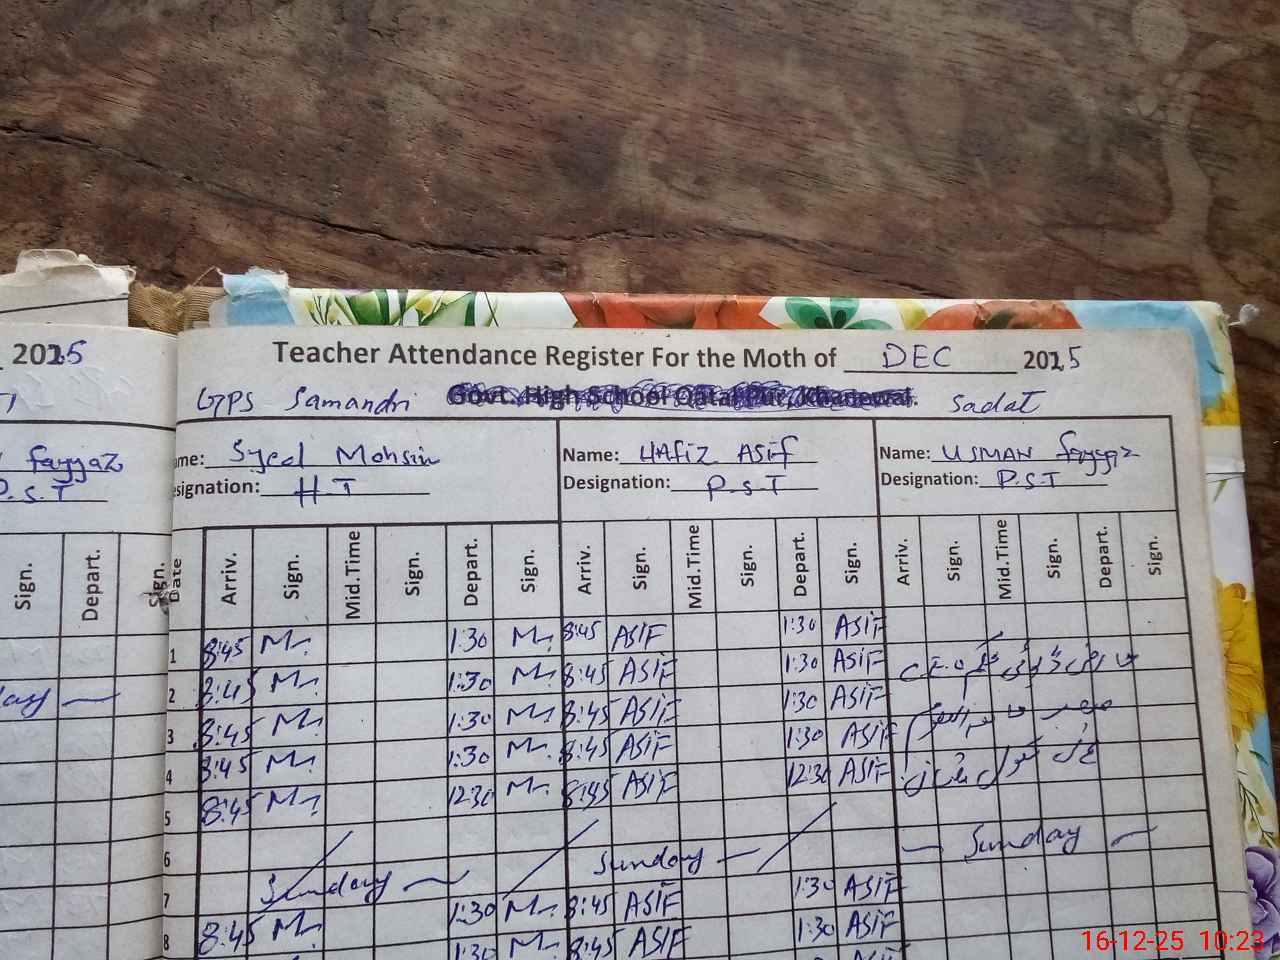 2025
Teacher Attendance Register For the Moth of DEC 2025
GPS Samandri Govt. High School Qatal Pur, Khanewal. Sadat
fayyaz
P.S.T
ame: Syed Mohsin
esignation: H.T
Name: HAFIZ ASIF
Designation: P.S.T
Name: USMAN fayyaz
Designation: P.S.T
Sign. Depart. Sign.
Date Arriv. Sign. Mid.Time Sign. Depart. Sign. Arriv. Sign. Mid.Time Sign. Depart. Sign. Arriv. Sign. Mid.Time Sign. Depart. Sign.
1 8:45 1:30 8:45 ASIF 1:30 ASIF
2 8:45 1:30 8:45 ASIF 1:30 ASIF
3 8:45 1:30 8:45 ASIF 1:30 ASIF
4 8:45 1:30 8:45 ASIF 1:30 ASIF
5 8:45 12:30 8:45 ASIF 12:30 ASIF
6
7 Sunday Sunday Sunday
8 8:45 1:30 8:45 ASIF 1:30 ASIF
1:30 8:45 ASIF 1:30 ASIF
16-12-25 10:23